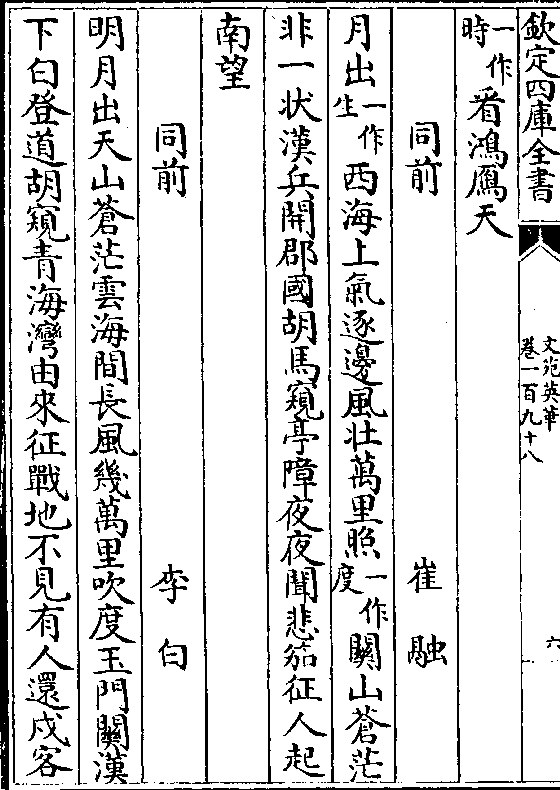 欽定四庫全書
文苑英華
卷一百九十八
六
一作時看鴻鴈天
同前 崔融
月出一作生西海上氣逐邊風壯萬里照一作度關山蒼茫
非一狀漢兵開郡國胡馬窺亭障夜夜聞悲笳征人起
南望
同前 李白
明月出天山蒼茫雲海間長風幾萬里吹度玉門關漢
下白登道胡窺青海灣由來征戰地不見有人還戍客